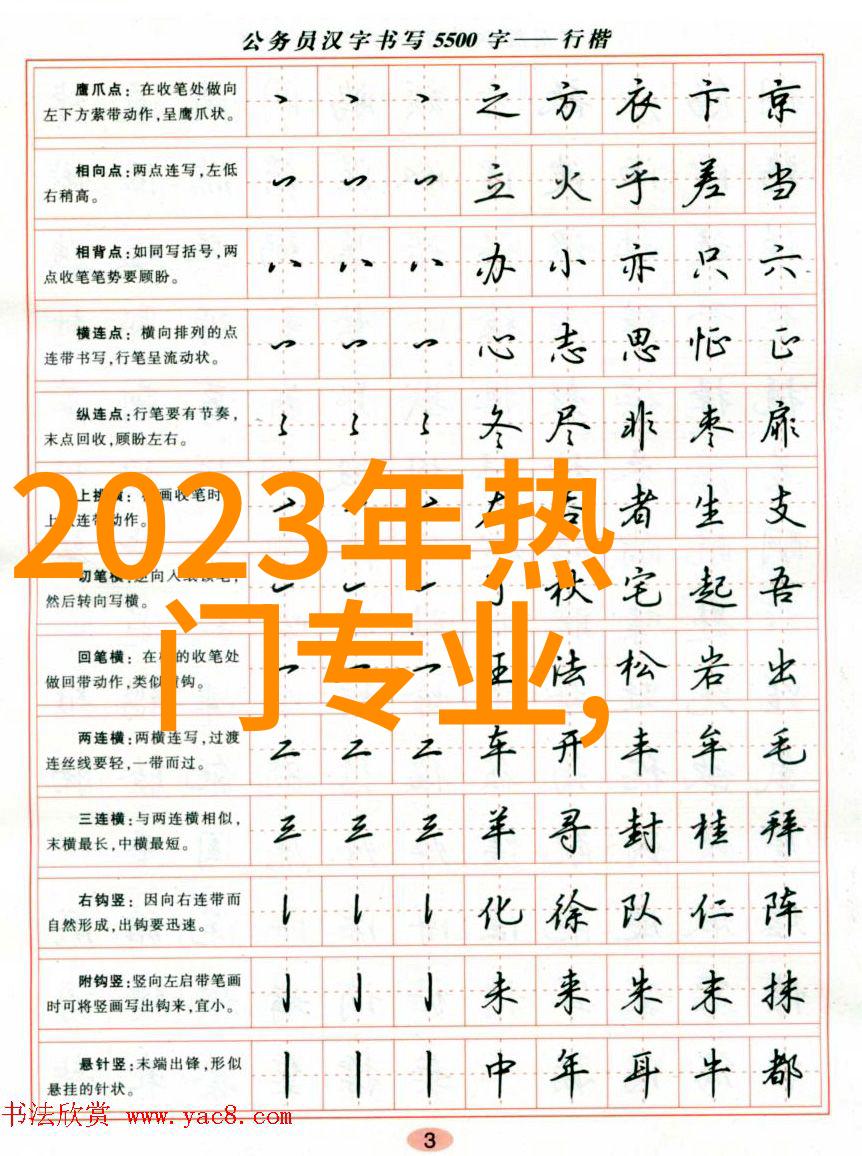 公务员汉字书写5500字——行楷
鹰爪点：在收笔处做向
左下方萦带动作，呈鹰爪状。
之 方 衣 卞 京
相向点：两点连写，左低
右稍高。
立 火 乎 差 当
相背点：如同写括号，两
点收笔笔势要顾盼。
办 小 亦 只 六
横连点：横向排列的点
连带书写，行笔呈流动状。
心 志 思 恒 正
纵连点：行笔要有节奏，
末点回收，顾盼左右。
冬 尽 非 枣 扉
上挑横：横画收笔时
上 连带动作。
者 生 支
2023年热
切笔横：逆向入纸
然后转向写横。
秋 宅 起 吾
门专业，
回笔横：在横的收笔处
做回带动作，类似横钩。
王 法 松 岩 出
两连横：两横连写，过渡
连丝线要轻，一带而过。
车 开 丰 牟 毛
三连横：与两连横相似，
末横最长，中横最短。
羊 寻 封 桂 拜
右钩竖：因向右连带而
自然形成，出钩要迅速。
化 徐 队 仁 阵
附钩竖：竖向左启带笔画
时可将竖画写出钩来，宜小。
未 来 朱 末 抹
悬针竖：末端出锋，形似
悬挂的针状。
中 年 耳 牛 都
书法欣赏 www.yac8.com
3